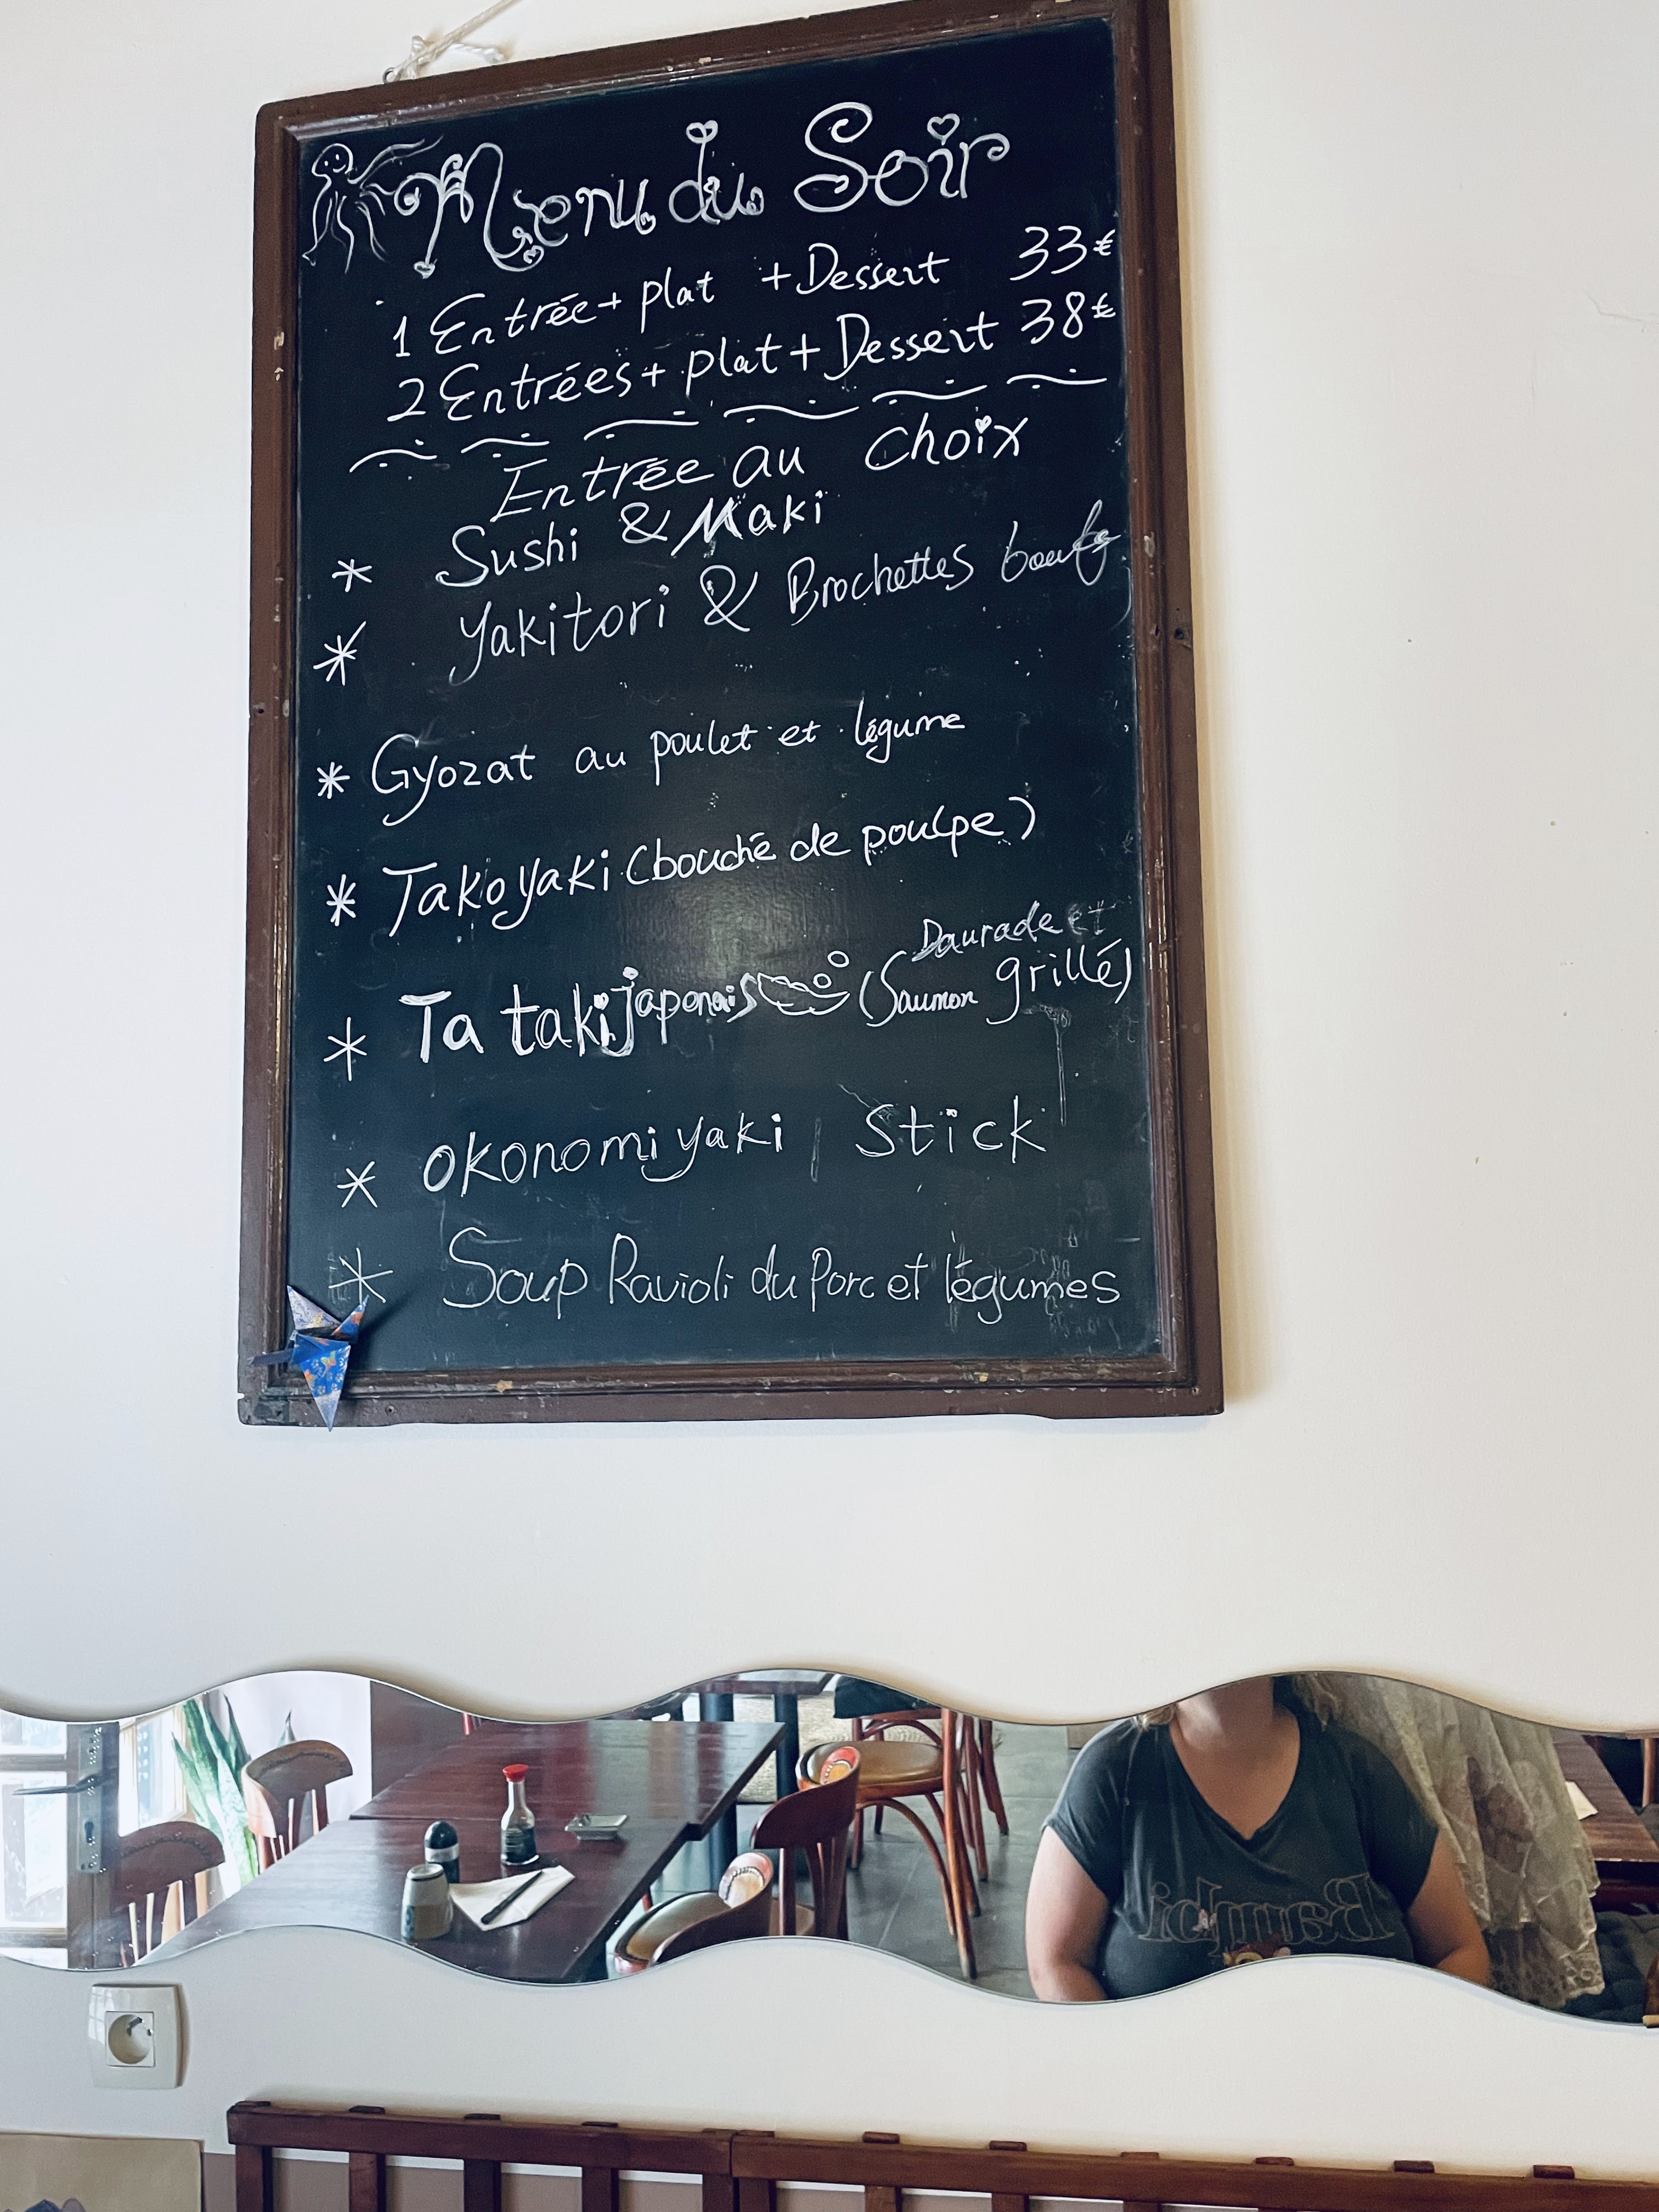 Menu du Soir
1 Entrée + plat + Dessert 33€
2 Entrées + plat + Dessert 38€
Entrée au choix
* Sushi & Maki
* Yakitori & Brochettes boeuf
* Gyozat au poulet et légume
* Takoyaki (bouché de poulpe)
* Ta taki japonais (Daurade et
Saumon grillé)
* Okonomiyaki Stick
* Soup Ravioli du Porc et légumes
Bambi